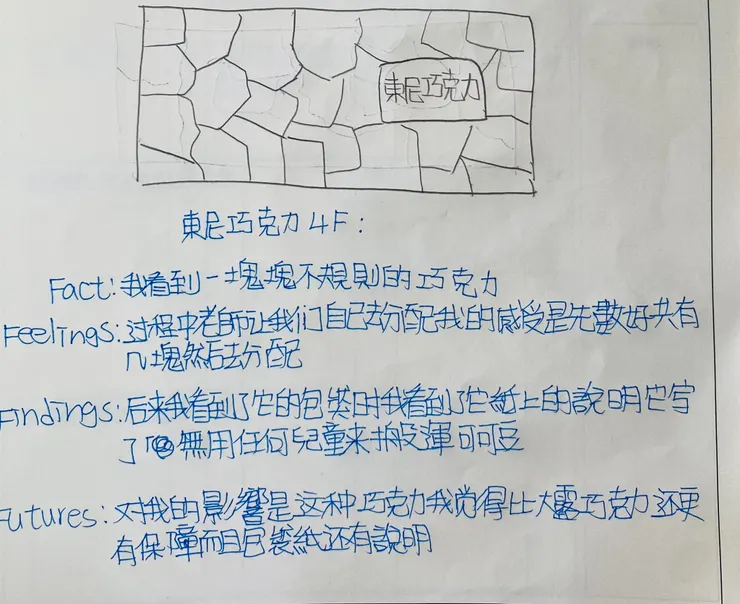 東尼巧克力
東尼巧克力4F:
Fact:我看到一塊塊不規則的巧克力
Feelings:过程中老師让我们自己去分配我的感受是先數好共有
几塊然后去分配
Findings:后来我看到了它的包裝时我看到了它紙上的說明它写
了無用任何兒童来搬運可可豆
Futures:对我的影響是这种巧克力我觉得比大露巧克力还更
有保障而且包裝紙还有說明